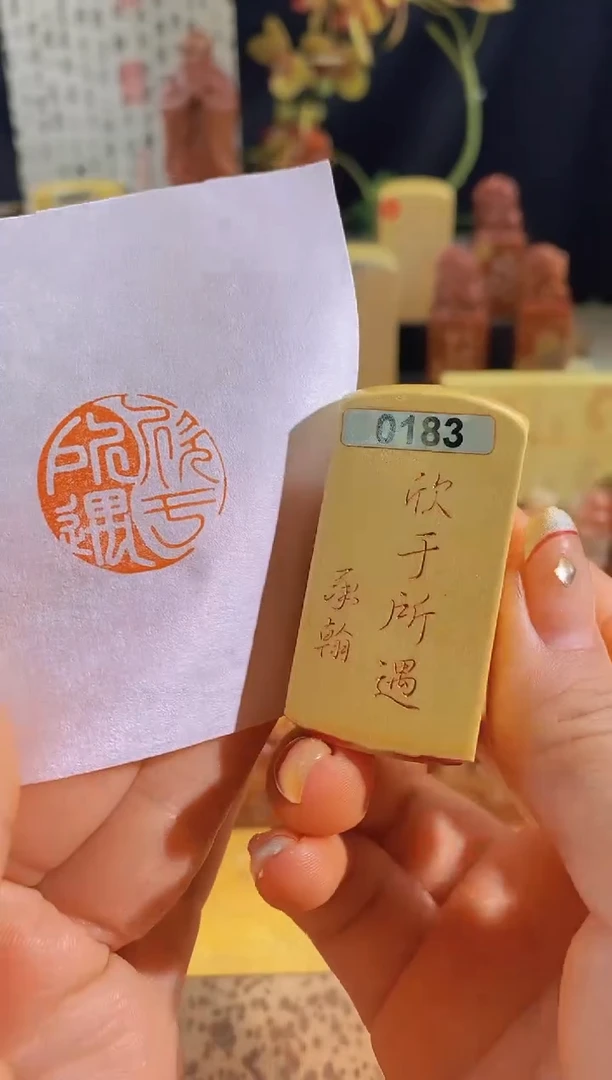 0183
欣于所遇
承翰
欣于所遇